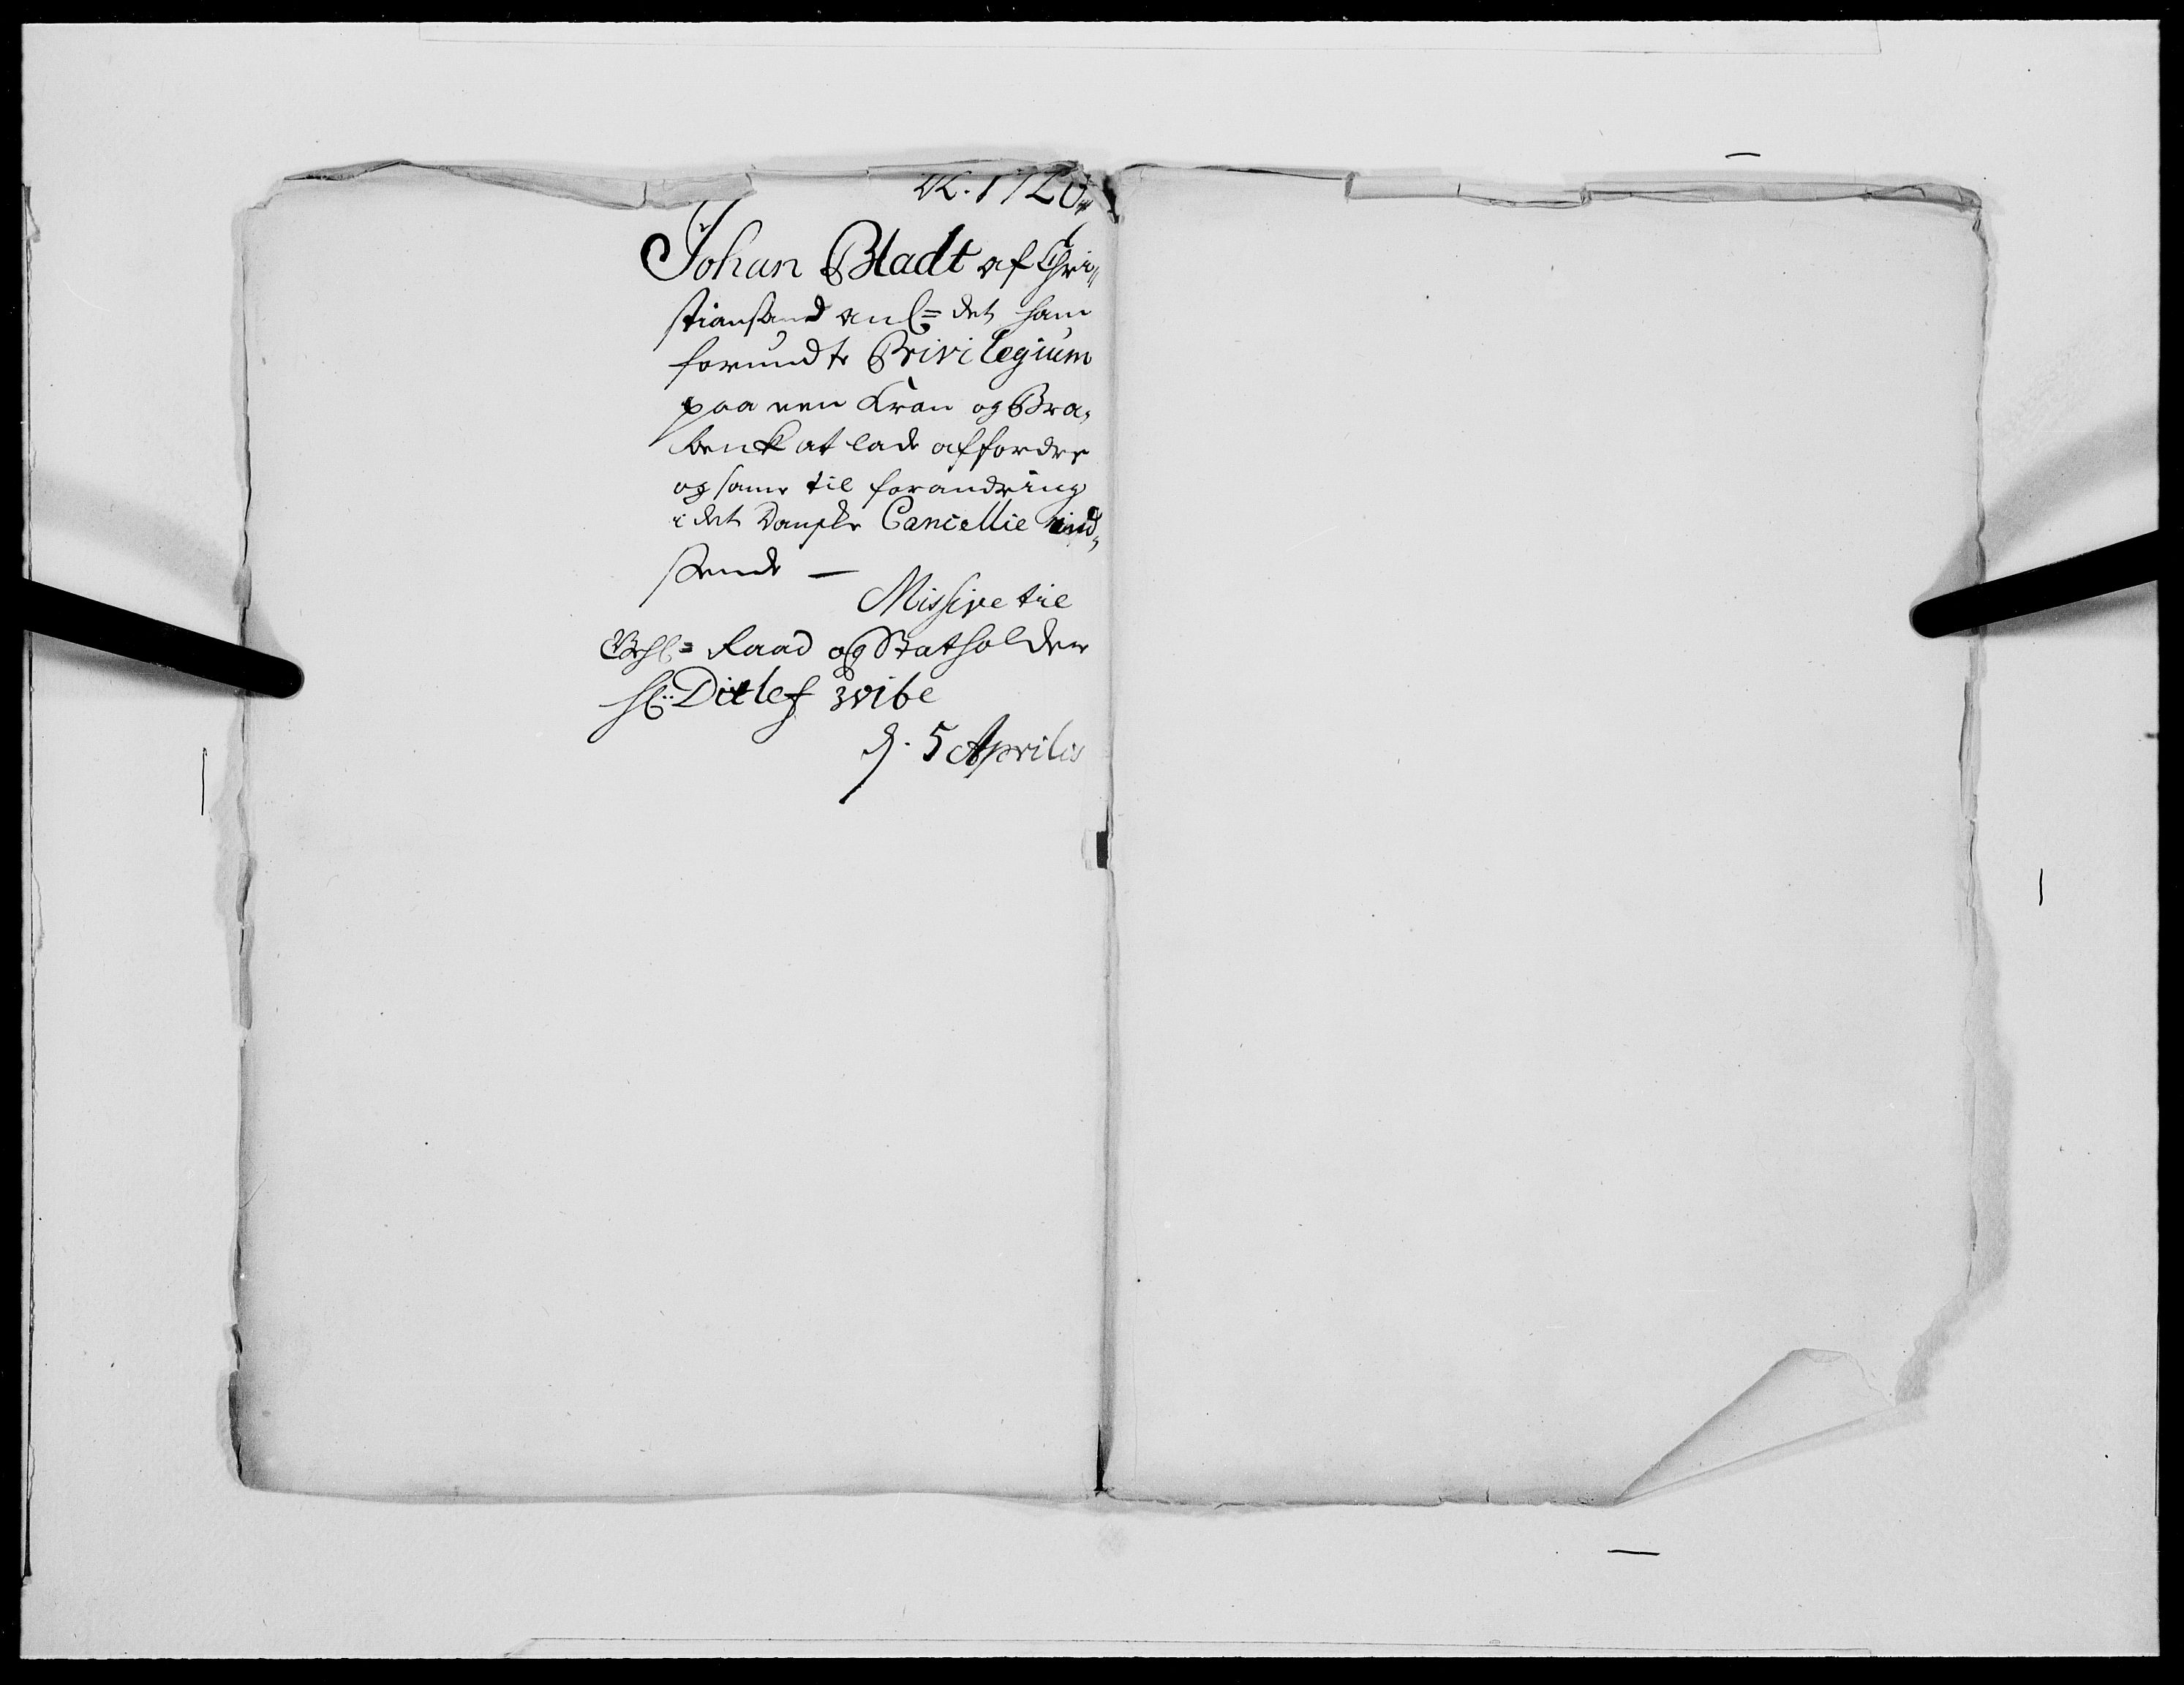 1720,,
Johan Bladt af Chri,,
stiansand anl= det ham
forundte Privilegium
paa een Kran og Bra,
benk at lade affordre
og same til forandring
i det Danske Cancellie ind,
sende —
Missive til
Gehl= Raad og Statholder
Hl: Ditlef Wibe
d. 5 Aprilis